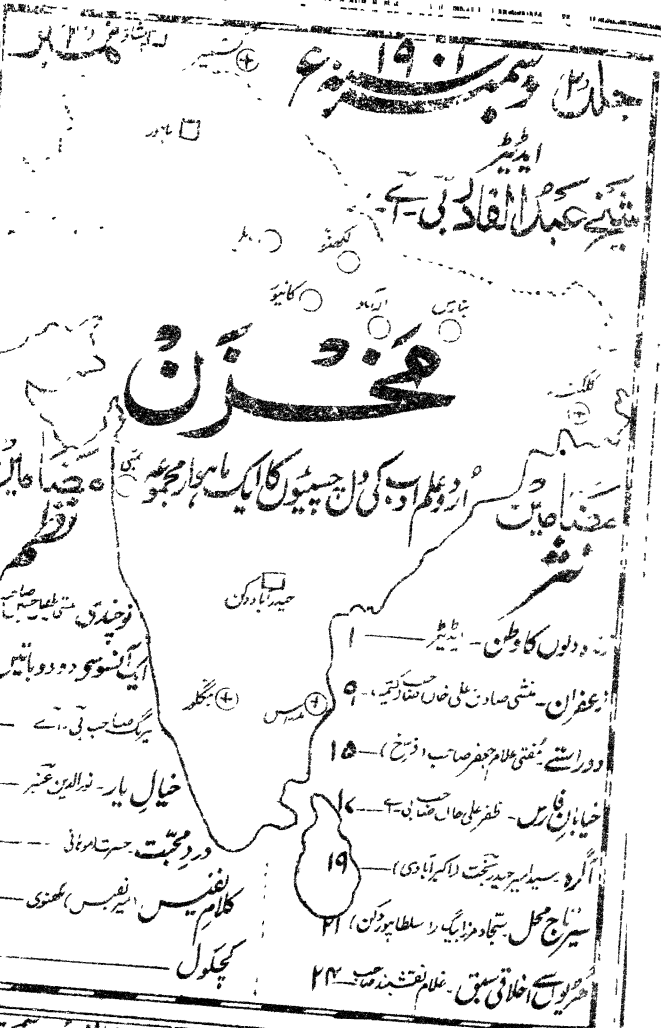 جلد ۲ دسمبر سنہ ۱۹۰۱ء نمبر ۳
ایڈیٹر
شیخ عبدالقادر بی۔ اے۔
کشمیر
لاہور
دہلی
لکھنؤ
کانپور
الہ آباد
بنارس
کلکتہ
مخزن
اردو علم ادب کی دلچسپیوں کا ایک ماہوار مجموعہ
بمبئی
حیدرآباد دکن
مدراس
بنگلور
مضامین نثر
زندہ دلوں کا وطن۔ ایڈیٹر ۱
زعفران۔ منشی صادق علی خاں صاحب ۹
دو راستے (مفتی غلام جعفر صاحب فرخ) ۱۵
خیابان فارس۔ ظفر علی خاں صاحب بی۔ اے ۱۷
آگرہ۔ سید امیر حیدر بخت (اکبرآبادی) ۱۹
سیر تاج محل۔ سجاد مرزا بیگ (سلطانپور دکن) ۲۱
سے اخلاقی سبق۔ غلام نقشبند صاحب ۲۴
مضامین نظم
نوچندی
ایک آنسو سے دو دو باتیں
نیرنگ صاحب بی۔ اے
خیال یار۔ نورالدین عنبر
درد محبت۔ حسرت موہانی
کلام نفیس (میر نفیس) لکھنوی
کچکول